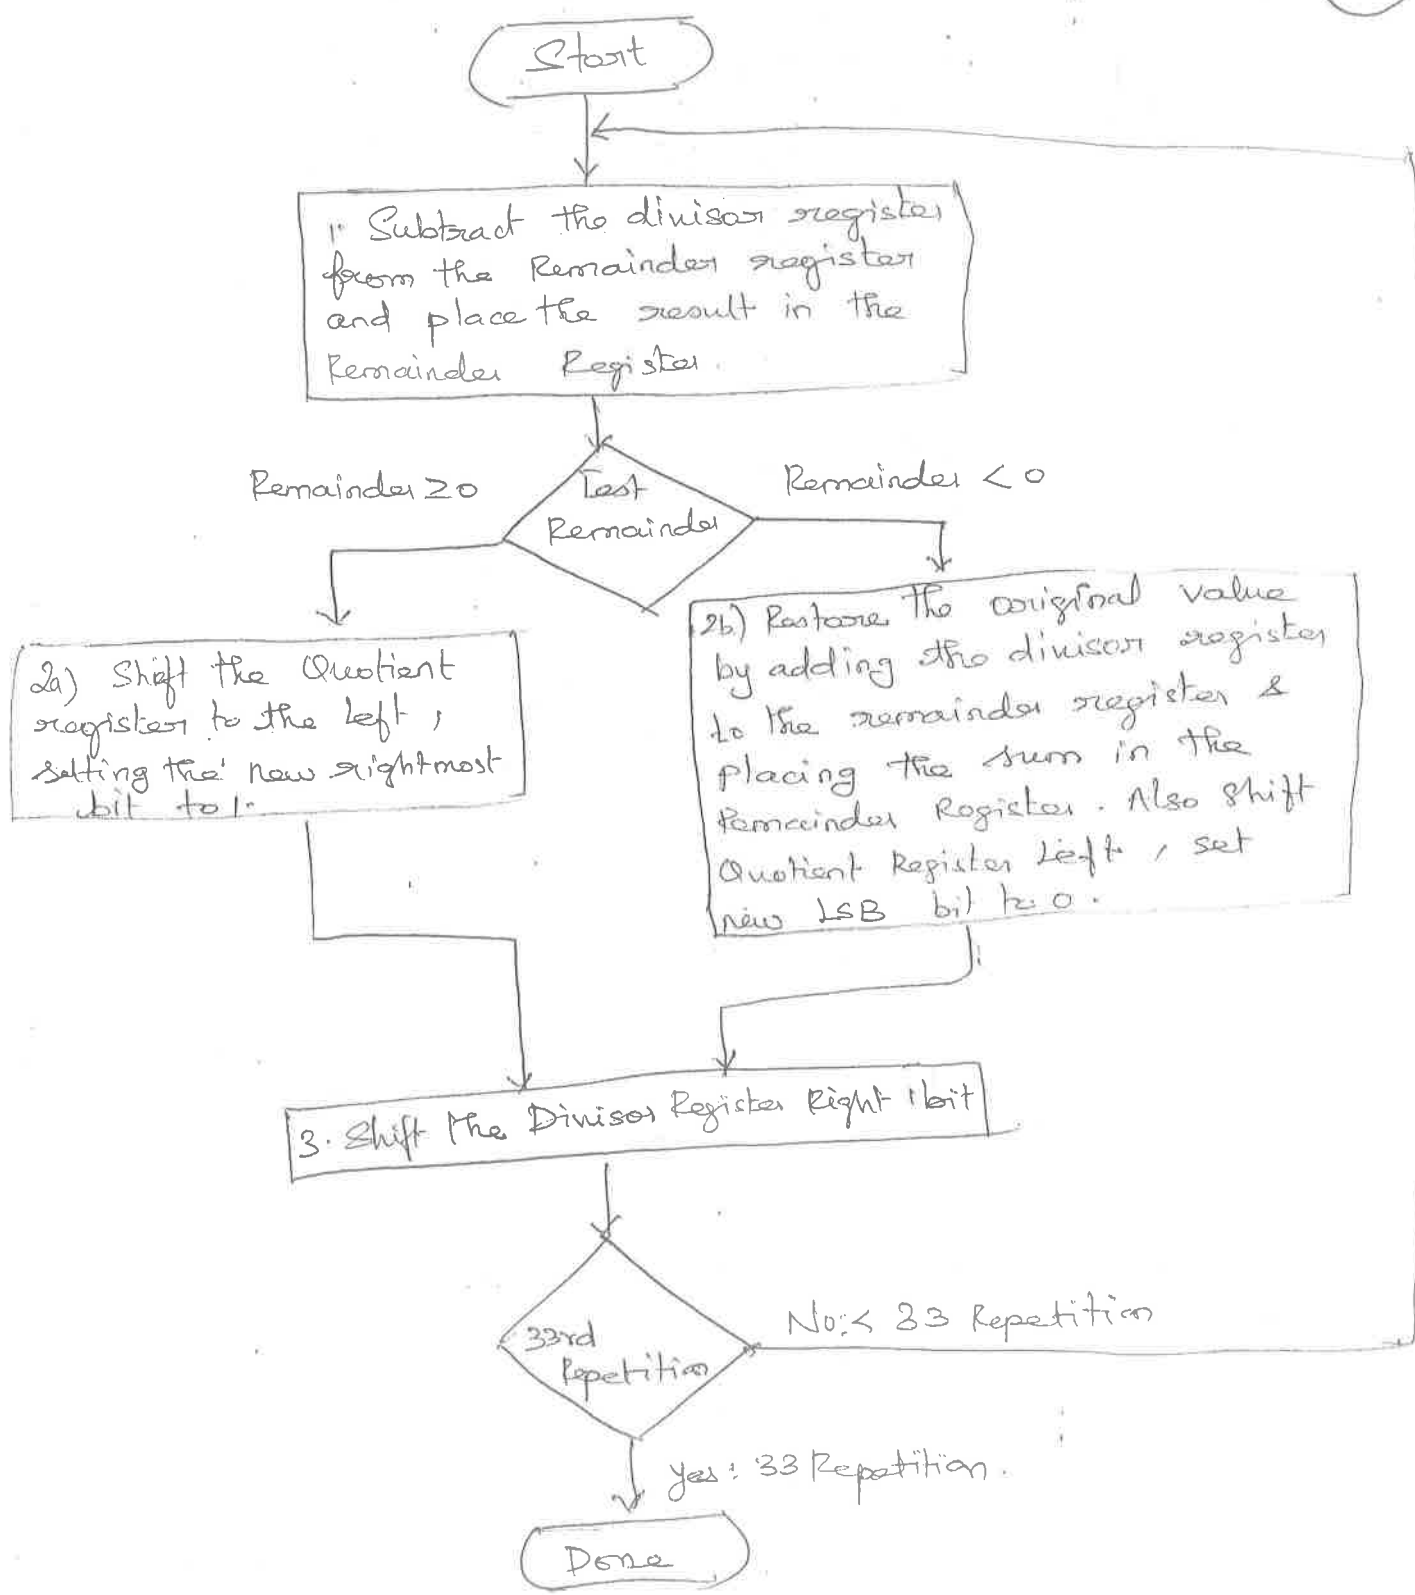 Start
1. Subtract the divisor register
from the Remainder register
and place the result in the
Remainder Register.
Remainder ≥0
Test
Remainder
Remainder <0
2a) Shift the Quotient
register to the left,
setting the new rightmost
bit to 1.
2b) Restore the original value
by adding the divisor register
to the remainder register &
placing the sum in the
Remainder Register. Also shift
Quotient Register Left, set
new LSB bit to 0.
3. Shift the Divisor Register Right 1 bit
33rd
Repetition
No:< 33 Repetition
Yes: 33 Repetition.
Done